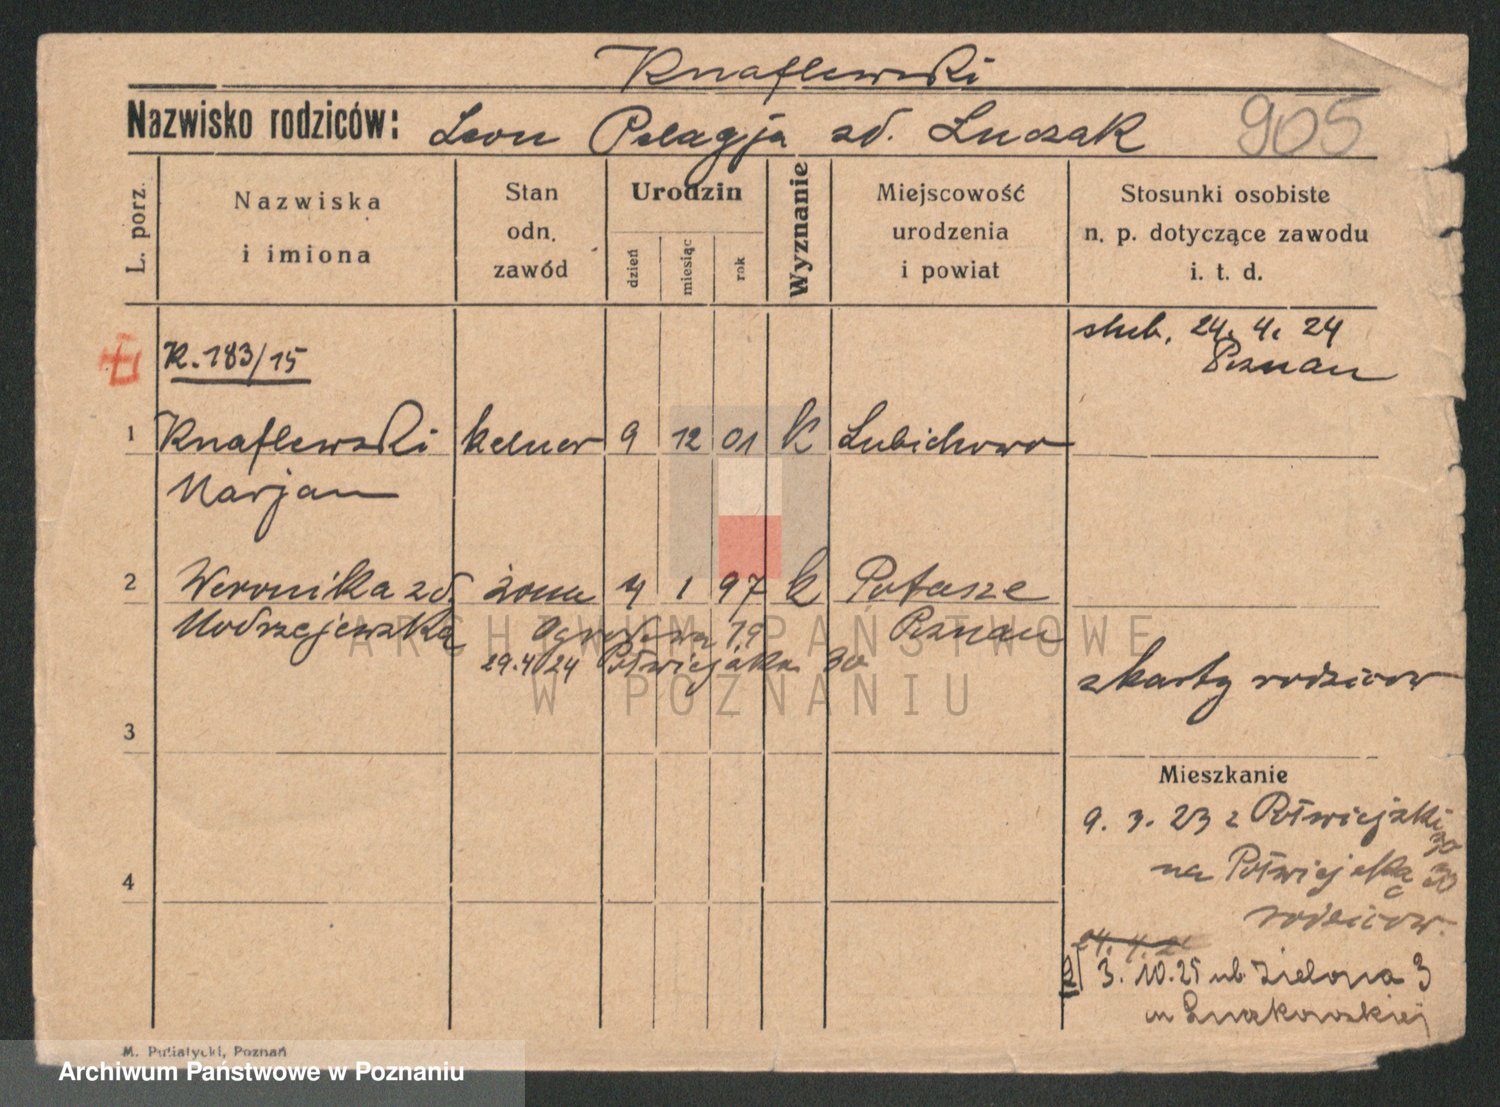 Knaflewski
905
Nazwisko rodziców: Leon Pelagja zd. Luczak
L. porz.
Nazwiska
i imiona
Stan
odn.
zawód
Urodzin
dzień
miesiąc
rok
Wyznanie
Miejscowość
urodzenia
i powiat
Stosunki osobiste
n. p. dotyczące zawodu
i. t. d.
K. 183/15
slub. 24. 4. 24
Poznan
1 Knaflewski kelner 9 12 01 k Lubichowo
Marjan
2 Weronika zd. żona 4 1 97 k Potasze
Modrzejewska Ogrodowa 19 Poznan
29.4 24 Półwiejska 30
z karty rodzicow
3
Mieszkanie
9. 3. 23 z Półwiejski 30
na Półwiejską 30
4
rodzicow.
3. 10. 25 ub. Zielona 3
m Luczkowskiej
M. Putiatycki, Poznań
ARCHIWUM PAŃSTWOWE
W POZNANIU
Archiwum Państwowe w Poznaniu